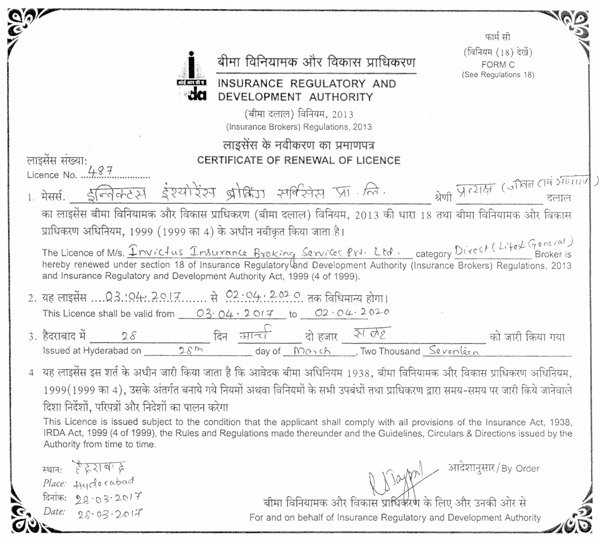 फार्म सी
(विनियम (18) देखें)
FORM C
(See Regulations 18)
आई आर डी ए
irda
बीमा विनियामक और विकास प्राधिकरण
INSURANCE REGULATORY AND
DEVELOPMENT AUTHORITY
(बीमा दलाल) विनियम, 2013
(Insurance Brokers) Regulations, 2013
लाइसेंस के नवीकरण का प्रमाणपत्र
CERTIFICATE OF RENEWAL OF LICENCE
लाइसेंस संख्या:
Licence No. 487
1. मेसर्स. इन्विक्टस इंश्योरेंस ब्रोकिंग सर्विसेस प्रा. लि. श्रेणी प्रत्यक्ष (जीवन एवं साधारण) दलाल
का लाइसेंस बीमा विनियामक और विकास प्राधिकरण (बीमा दलाल) विनियम, 2013 की धारा 18 तथा बीमा विनियामक और विकास
प्राधिकरण अधिनियम, 1999 (1999 का 4) के अधीन नवीकृत किया जाता है।
The Licence of M/s. Invictus Insurance Broking Services Pvt. Ltd. category Direct (Life & General) Broker is
hereby renewed under section 18 of Insurance Regulatory and Development Authority (Insurance Brokers) Regulations, 2013
and Insurance Regulatory and Development Authority Act, 1999 (4 of 1999).
2. यह लाइसेंस 03.04.2017 से 02.04.2020 तक विधिमान्य होगा।
This Licence shall be valid from 03.04.2017 to 02.04.2020
3. हैदराबाद में 28 दिन मार्च दो हजार सत्रह को जारी किया गया
Issued at Hyderabad on 28th day of March, Two Thousand Seventeen
4 यह लाइसेंस इस शर्त के अधीन जारी किया जाता है कि आवेदक बीमा अधिनियम 1938, बीमा विनियामक और विकास प्राधिकरण अधिनियम,
1999(1999 का 4), उसके अंतर्गत बनाये गये नियमों अथवा विनियमों के सभी उपबंधों तथा प्राधिकरण द्वारा समय-समय पर जारी किये जानेवाले
दिशा निर्देशों, परिपत्रों और निदेशों का पालन करेगा
This Licence is issued subject to the condition that the applicant shall comply with all provisions of the Insurance Act, 1938,
IRDA Act, 1999 (4 of 1999), the Rules and Regulations made thereunder and the Guidelines, Circulars & Directions issued by the
Authority from time to time.
स्थान: हैदराबाद
Place: Hyderabad
दिनांक: 28.03.2017
Date: 28.03.2017
आदेशानुसार/By Order
बीमा विनियामक और विकास प्राधिकरण के लिए और उनकी ओर से
For and on behalf of Insurance Regulatory and Development Authority